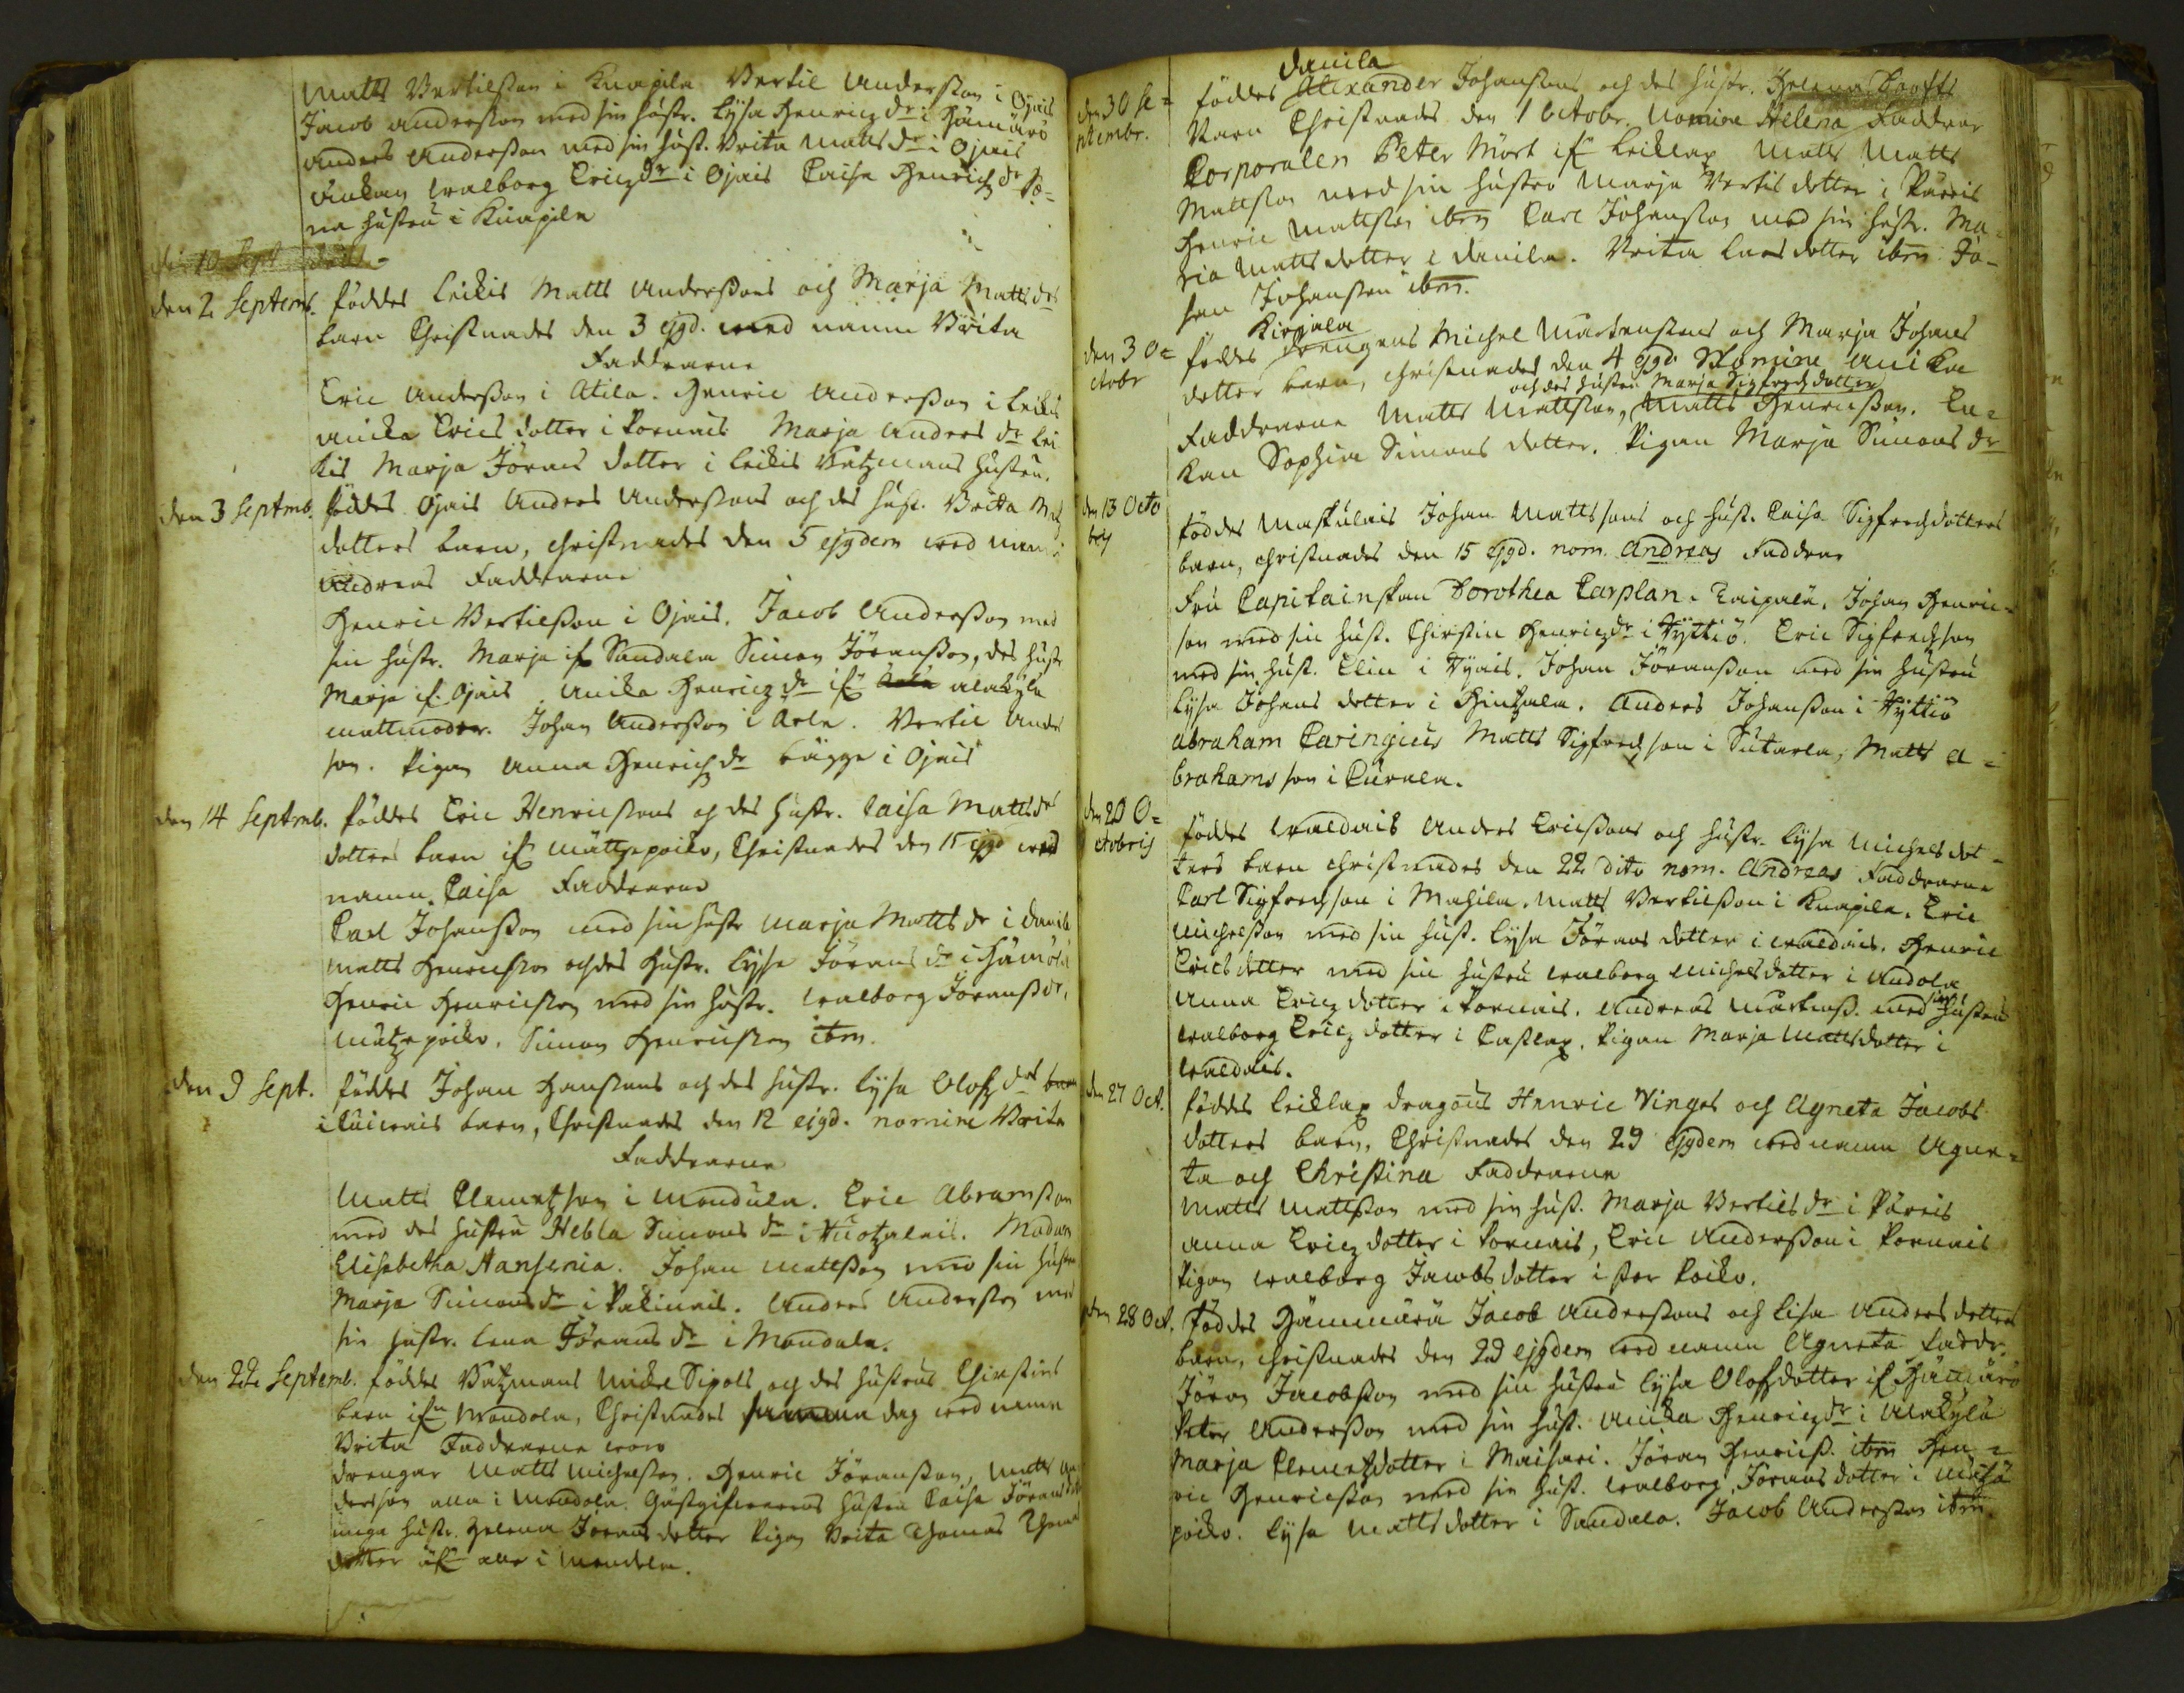 Matts Bertilsson i Knapila Bertil Andersson i Ojais
Jacob andersson med sin hustr. Lysa Henricz dr i Hämärö
anders Andersson med sin hust. Brita Matts dr i Ojais
Enkan walborg Ericz dr i Ojais Caisa Henrichz dr So-
na hustru i Knapila
den 10 Sept
den 2 Septemb. föddes Leikis Matts Anderssons och Marja Mattsdrs
barn Christnades den 3 ejgd. med namn Brita
Faddrarne
Eric Andersson i Atila. Henric Andersson i Leikis
Anika Erics dotter i Pornais Marja Anders dr Lei
kis Marja Jörans dotter i Leikis Katzmans hustru.
den 3 Septmb. föddes Ojais Anders Anderssons och des hust. Britta Mats
dotters barn, christnades den 5 ejgdem med namn
Andreas Faddrarne
Henric Bertilsson i Ojais. Jacob Andersson med
sin hustr. Marja if Sandala Simon Jöransson, des hustr
Marja if. Ojais Anika Henricz dr if alakylä
mattmoder. Johan Andersson i Arla. Bertil Anders
son. Pigan Anna Henrichz dr bägge i Ojais
den 14 Septmb. föddes Eric Henricssons och des hustr. Caisa Matts
dotters barn if Mättzepoiko, Christnades den 15 ejgd med
namn Caisa Faddrarne
Carl Johansson med sin hustr Marja Matts dr i Danila
Matts Henricsson och des hustr. Lysa Jörans dr i Hämärö
Henric Henricsson med sin hustr. walborg Jöranssdr,
Mätzepoiko. Simon Henricsson ibm.
den 9 Sept. föddes Johan Hanssons och des hustr. Lysa Olofz drs
i barn, Christnades den 12 ejgd. nomine Brita
Faddrarne
Matts Clemetsson i Mondula. Eric Abramsson
med des hustru Hebla Simons dr i Madam
Elisabetha Hansenia. Johan Mattsson med sin hustru
Marja Simons dr i Anders Andersson med
sin hustr. Lena Jörans dr i Mondala.
den 22 Septemb. föddes Katzmans Mickel Sipols och des hustrus Christins
barn ifn Mondola, Christnades samma dag med namn
Brita Faddrarne woro
drengar Matts Michelsson. Henric Jöransson, Matts An
dersson alla i Mondola. Gästgifwarens hustru Caisa Jörans
unga hustr. Helena Jörans dotter Pigan Brita Thomas
dotter alla i Mondola.
den 30 Se=
ptembr.
Danila
föddes Alexander Johanssons och des hustr. Helena
Barn Christnades den 1 Octobr. Nomine Helena Faddrar
Corporalen Peter Mört if Leiklax Matts Matts
Mattsson med sin hustru Marja Bertils dotter i Pörris
Henric Mattsson ibm Carl Johansson med sin hustr. Ma-
ria Mattsdotter i Danila. Brita Larsdotter ibm Jo-
han Johansson ibm.
den 3 O=
ctobr
Kirjala
föddes drengens Michel Mårtenssons och Marja Johans
dotter barn, christnades den 4 ejgd. Nomine Anika
och des hustru Marja Sigfredsdotter
Faddrarne Matts Mattsson, Matts Henricsson. En-
kan Sophia Simons dotter. Pigan Marja Simons dr
den 13 Octo
bris
föddes Maskulais Johan Mattssons och hust. Caisa Sigfredsdotters
barn, christnades den 15 ejgd. nom. Andreas Faddrar
Fru Capitainskan Dorothea Carplan. Johan Henric-
son med sin hust. Christin Henricz dr i Tyttiö. Eric Sigfredsson
med sin hust. Elin i Johan Jöransson med sin hustru
Lysa Johans dotter i Hintzala. Anders Johansson i Tyttiö
Abraham Caringius Matts Sigfredsson i Sutarla, Matts A-
brahamsson i Curala.
den 20 O=
ctobris
föddes waldais Anders Ericssons och hustr. Lysa Michelsdot-
ters barn christnades den 22 dito nom. Andreas Faddrarne
Carl Sigfredsson i Mahila. Matts Bertilsson i Knapila. Eric
Michelsson med sin hust. Lysa Jörans dotter i waldais. Henric
Ericsdotter med sin hustru walborg Michelsdotter i Andola
Anna Ericz dotter i Pornais. Andreas Mårtenss. med sin hustru
walborg Ericz dotter i Caslax. Pigan Marja Mattsdotter i
waldais.
den 27 Oct. föddes Leiklax dragouns Henric Vinges och Agneta Jacobs
dotters barn, Christnades den 29 ejgdem med namn Agne-
ta och Christina Faddrarne
Matts Mattsson med sin hust. Marja Bertils dr i Pörris
anna Ericz dotter i Pornais, Eric Andersson i Pornais
Pigan walborg Jacobs dotter i stor Poiko.
den 28 Oct. föddes Hämmärä Jacob Anderssons och Lisa Andersdotters
barn, christnades den 29 ejgdem med namn Agneta Faddr.
Jöran Jacobsson med sin hustru Lysa Olofsdotter if Hämärö
Peter Andersson med sin hust. Anika Henricz dr i Alakylä
Marja Clemetzdotter i Maisari. Jöran Henricss. ibm Hen-
ric Henricsson med sin hust. walborg Jöransdotter i Mätzä
poiko. Lysa Mattsdotter i Sandala. Jacob Andersson ibm.